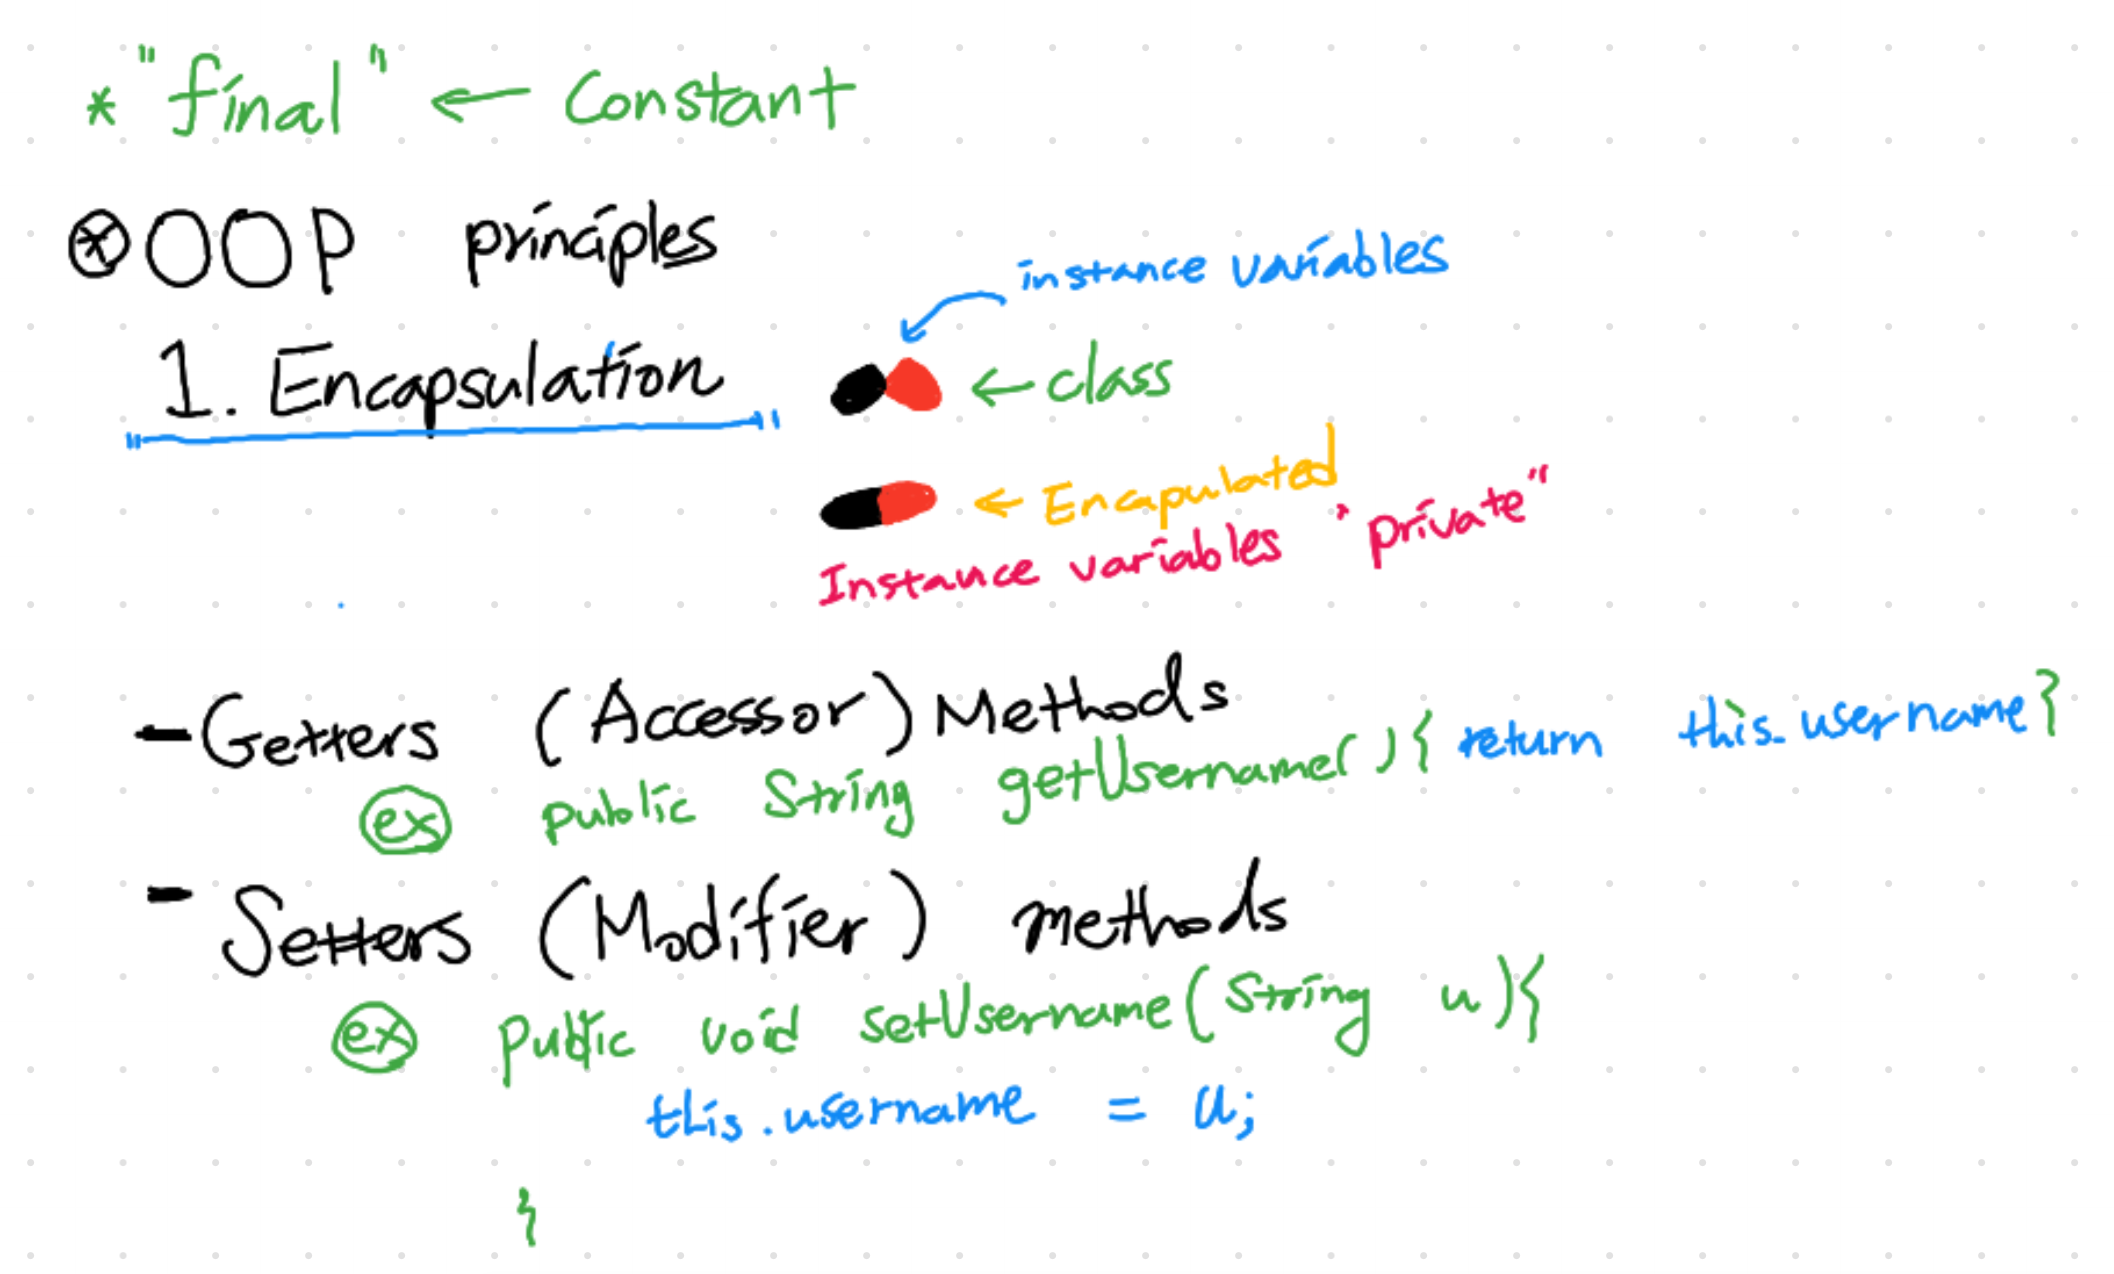 * "final" ← Constant
⊛ OOP principles
instance variables
1. Encapsulation
← class
← Encapulated
Instance variables "private"
- Getters (Accessor) Methods
ex public String getUsername(){ return this.username}
- Setters (Modifier) methods
ex public void setUsername(String u){
this.username = u;
}